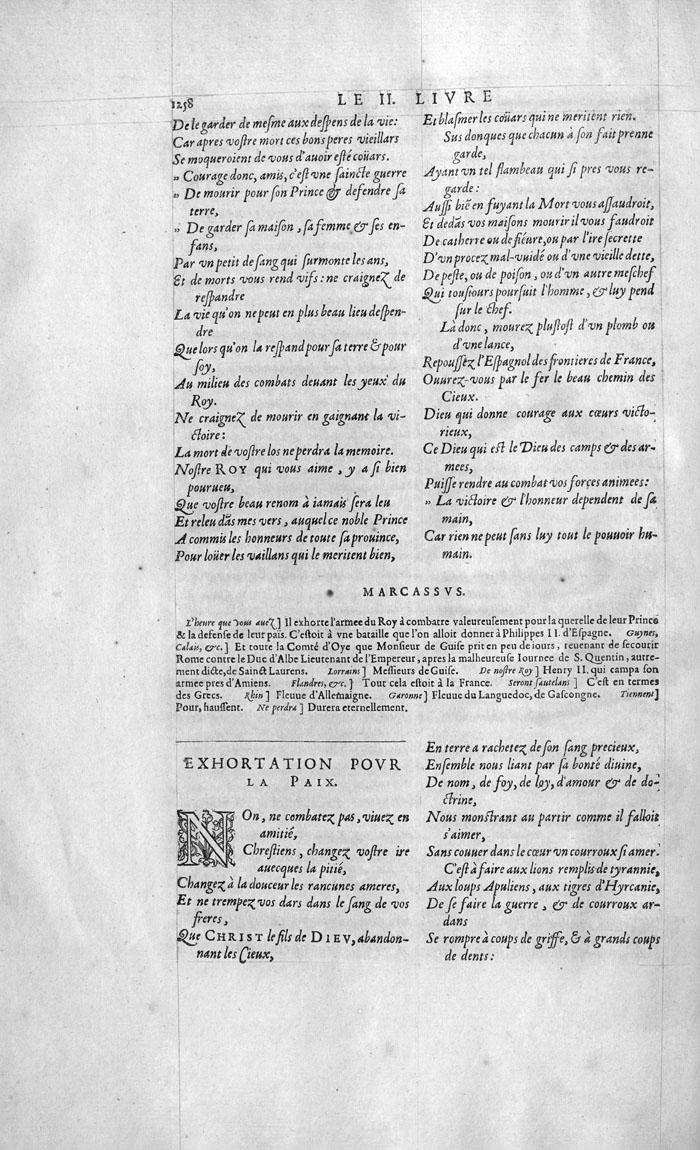 1258
LE II. LIVRE
De le garder de mesme aux despens de la vie:
Car apres vostre mort ces bons peres vieillars
Se moqueroient de vous d'auoir esté coüars.
„ Courage donc, amis, c'est vne saincte guerre
„ De mourir pour son Prince & defendre sa
terre,
„ De garder sa maison, sa femme & ses en-
fans,
Par vn petit de sang qui surmonte les ans,
Et de morts vous rend vifs: ne craignez de
respandre
La vie qu'on ne peut en plus beau lieu despen-
dre
Que lors qu'on la respand pour sa terre & pour
soy,
Au milieu des combats deuant les yeux du
Roy.
Ne craignez de mourir en gaignant la vi-
ctoire:
La mort de vostre los ne perdra la memoire.
Nostre ROY qui vous aime, y a si bien
pourueu,
Que vostre beau renom à iamais sera leu
Et releu dãs mes vers, auquel ce noble Prince
A commis les honneurs de toute sa prouince,
Pour loüer les vaillans qui le meritent bien,
Et blasmer les coüars qui ne meritent rien.
Sus donques que chacun à son fait prenne
garde,
Ayant vn tel flambeau qui si pres vous re-
garde:
Aussi biẽ en fuyant la Mort vous assaudroit,
Et dedãs vos maisons mourir il vous faudroit
De catherre ou de fiéure, ou par l'ire secrette
D'vn procez mal-vuidé ou d'vne vieille dette,
De peste, ou de poison, ou d'vn autre meschef
Qui tousiours poursuit l'homme, & luy pend
sur le chef.
Là donc, mourez plustost d'vn plomb ou
d'vne lance,
Repoussez l'Espagnol des frontieres de France,
Ouurez-vous par le fer le beau chemin des
Cieux.
Dieu qui donne courage aux cœurs victo-
rieux,
Ce Dieu qui est le Dieu des camps & des ar-
mees,
Puisse rendre au combat vos forces animees:
„ La victoire & l'honneur dependent de sa
main,
Car rien ne peut sans luy tout le pouuoir hu-
main.
MARCASSVS.
L'heure que vous auez] Il exhorte l'armee du Roy à combatre valeureusement pour la querelle de leur Prince
& la defense de leur païs. C'estoit à vne bataille que l'on alloit donner à Philippes II. d'Espagne. Guynes,
Calais, &c.] Et toute la Comté d'Oye que Monsieur de Guise prit en peu de iours, reuenant de secourir
Rome contre le Duc d'Albe Lieutenant de l'Empereur, apres la malheureuse Iournee de S. Quentin, autre-
ment dicte, de Sainct Laurens. Lorrains] Messieurs de Guise. De nostre Roy] Henry II. qui campa son
armee pres d'Amiens. Flandres, &c.] Tout cela estoit à la France. Seront sautelans] C'est en termes
des Grecs. Rhin] Fleuue d'Allemaigne. Garonne] Fleuue du Languedoc, de Gascongne. Tiennent]
Pour, haussent. Ne perdra] Durera eternellement.
EXHORTATION POVR
LA PAIX.
NOn, ne combatez pas, viuez en
amitié,
Chrestiens, changez vostre ire
auecques la pitié,
Changez à la douceur les rancunes ameres,
Et ne trempez vos dars dans le sang de vos
freres,
Que CHRIST le fils de DIEV, abandon-
nant les Cieux,
En terre a rachetez de son sang precieux,
Ensemble nous liant par sa bonté diuine,
De nom, de foy, de loy, d'amour & de do-
ctrine,
Nous monstrant au partir comme il falloit
s'aimer,
Sans couuer dans le cœur vn courroux si amer.
C'est à faire aux lions remplis de tyrannie,
Aux loups Apuliens, aux tigres d'Hyrcanie,
De se faire la guerre, & de courroux ar-
dans
Se rompre à coups de griffe, & à grands coups
de dents: